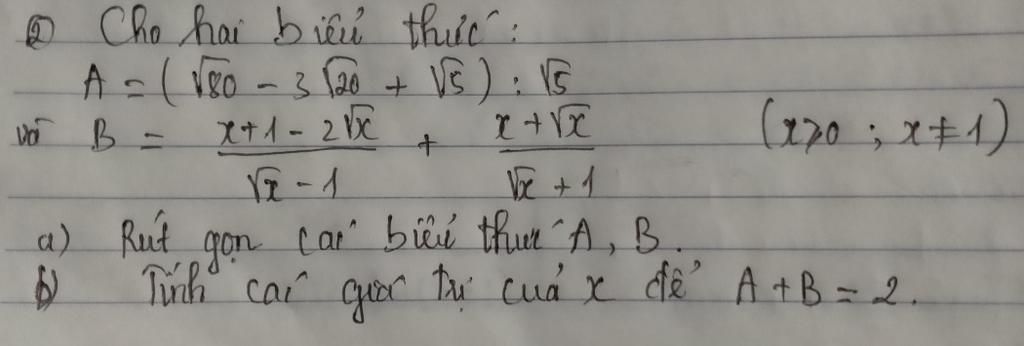 ② Cho hai biểu thức:
A = (√80 - 3√20 + √5) : √5
và B = (x+1-2√x)/(√x - 1) + (x+√x)/(√x + 1) (x≥0 ; x≠1)
a) Rút gọn các biểu thức A, B.
b) Tính các giá trị của x để A+B = 2.